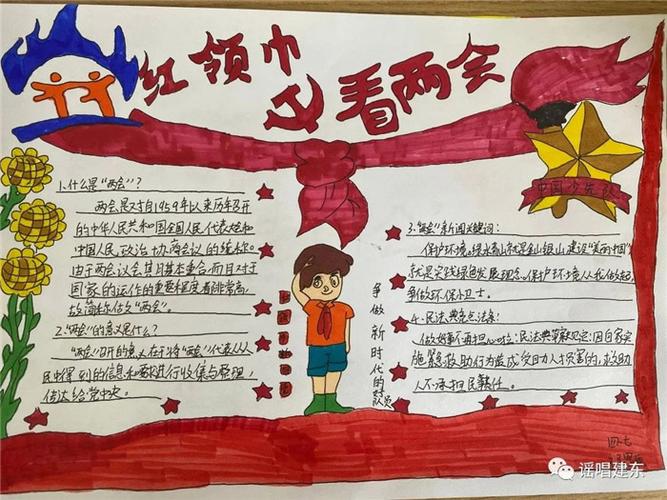 红领巾
心看两会
1、什么是"两会"?
两会是对自1959年以来历年召开
的中华人民共和国全国人民代表大会和
中国人民政治协商会议的统称。
由于两会议会其月基本重合,而且对于
国家的运作的重要程度都非常高,
故简称做"两会"。
2、"两会"的意义是什么?
"两会"召开的意义在于将"两会"代表从人
民中得到的信息和要求进行收集与整理,
传达给党中央。
争做新时代的好队员
中国少先队
3、"两会"新闻关键词:
保护环境。绿水青山就是金山银山 建设"美丽中国"
就是实践绿色发展理念。保护环境从我做起
争做环保小卫士。
4、民法典亮点法条:
做好事不再担心吃亏:民法典草案规定:因自愿实
施紧急救助行为造成受助人损害的,救助
人不承担民事责任。
四.七
谣唱建东